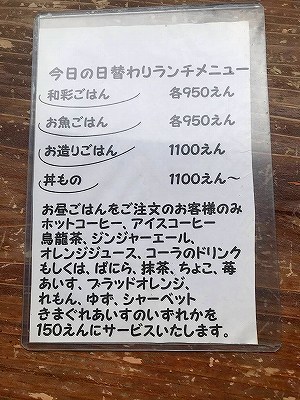 今日の日替わりランチメニュー
和彩ごはん 各950えん
お魚ごはん 各950えん
お造りごはん 1100えん
丼もの 1100えん～
お昼ごはんをご注文のお客様のみ
ホットコーヒー、アイスコーヒー
烏龍茶、ジンジャーエール、
オレンジジュース、コーラのドリンク
もしくは、ばにら、抹茶、ちょこ、苺
あいす、ブラッドオレンジ、
れもん、ゆず、シャーベット
きまぐれあいすのいずれかを
150えんにサービスいたします。